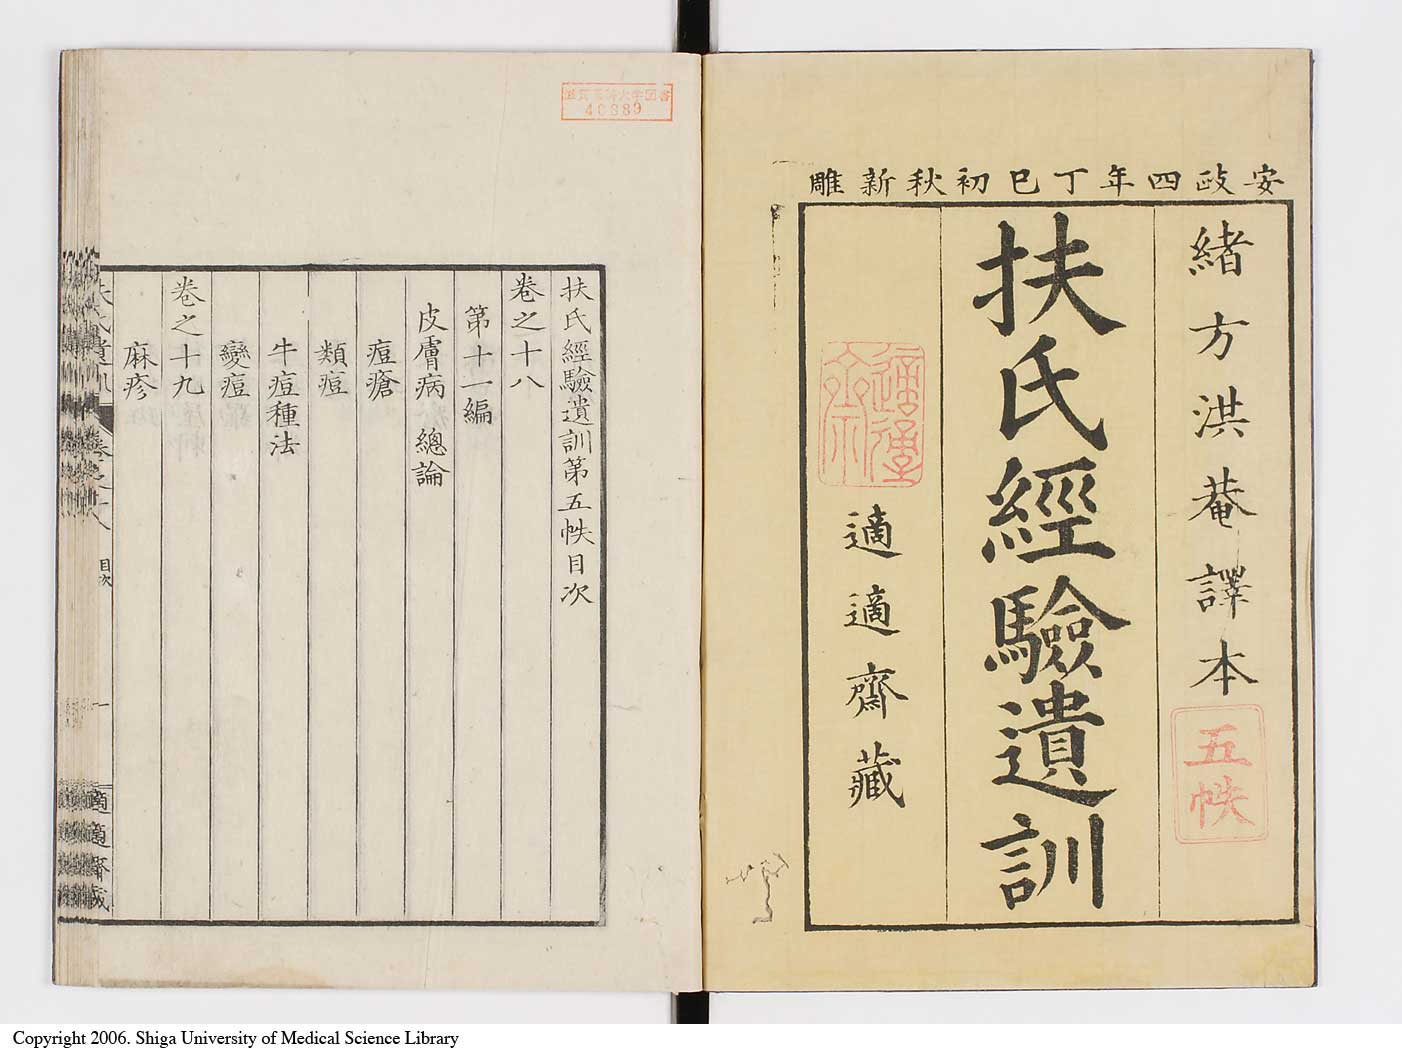 安政四年丁巳初秋新雕
緒方洪菴譯本
五帙
扶氏經驗遺訓
適適齋藏
滋賀医科大学図書
40889
扶氏經驗遺訓第五帙目次
卷之十八
第十一編
皮膚病總論
痘瘡
類痘
牛痘種法
變痘
卷之十九
麻疹
扶氏遺訓
卷之十八
目次
一
適適齋藏
Copyright 2006. Shiga University of Medical Science Library